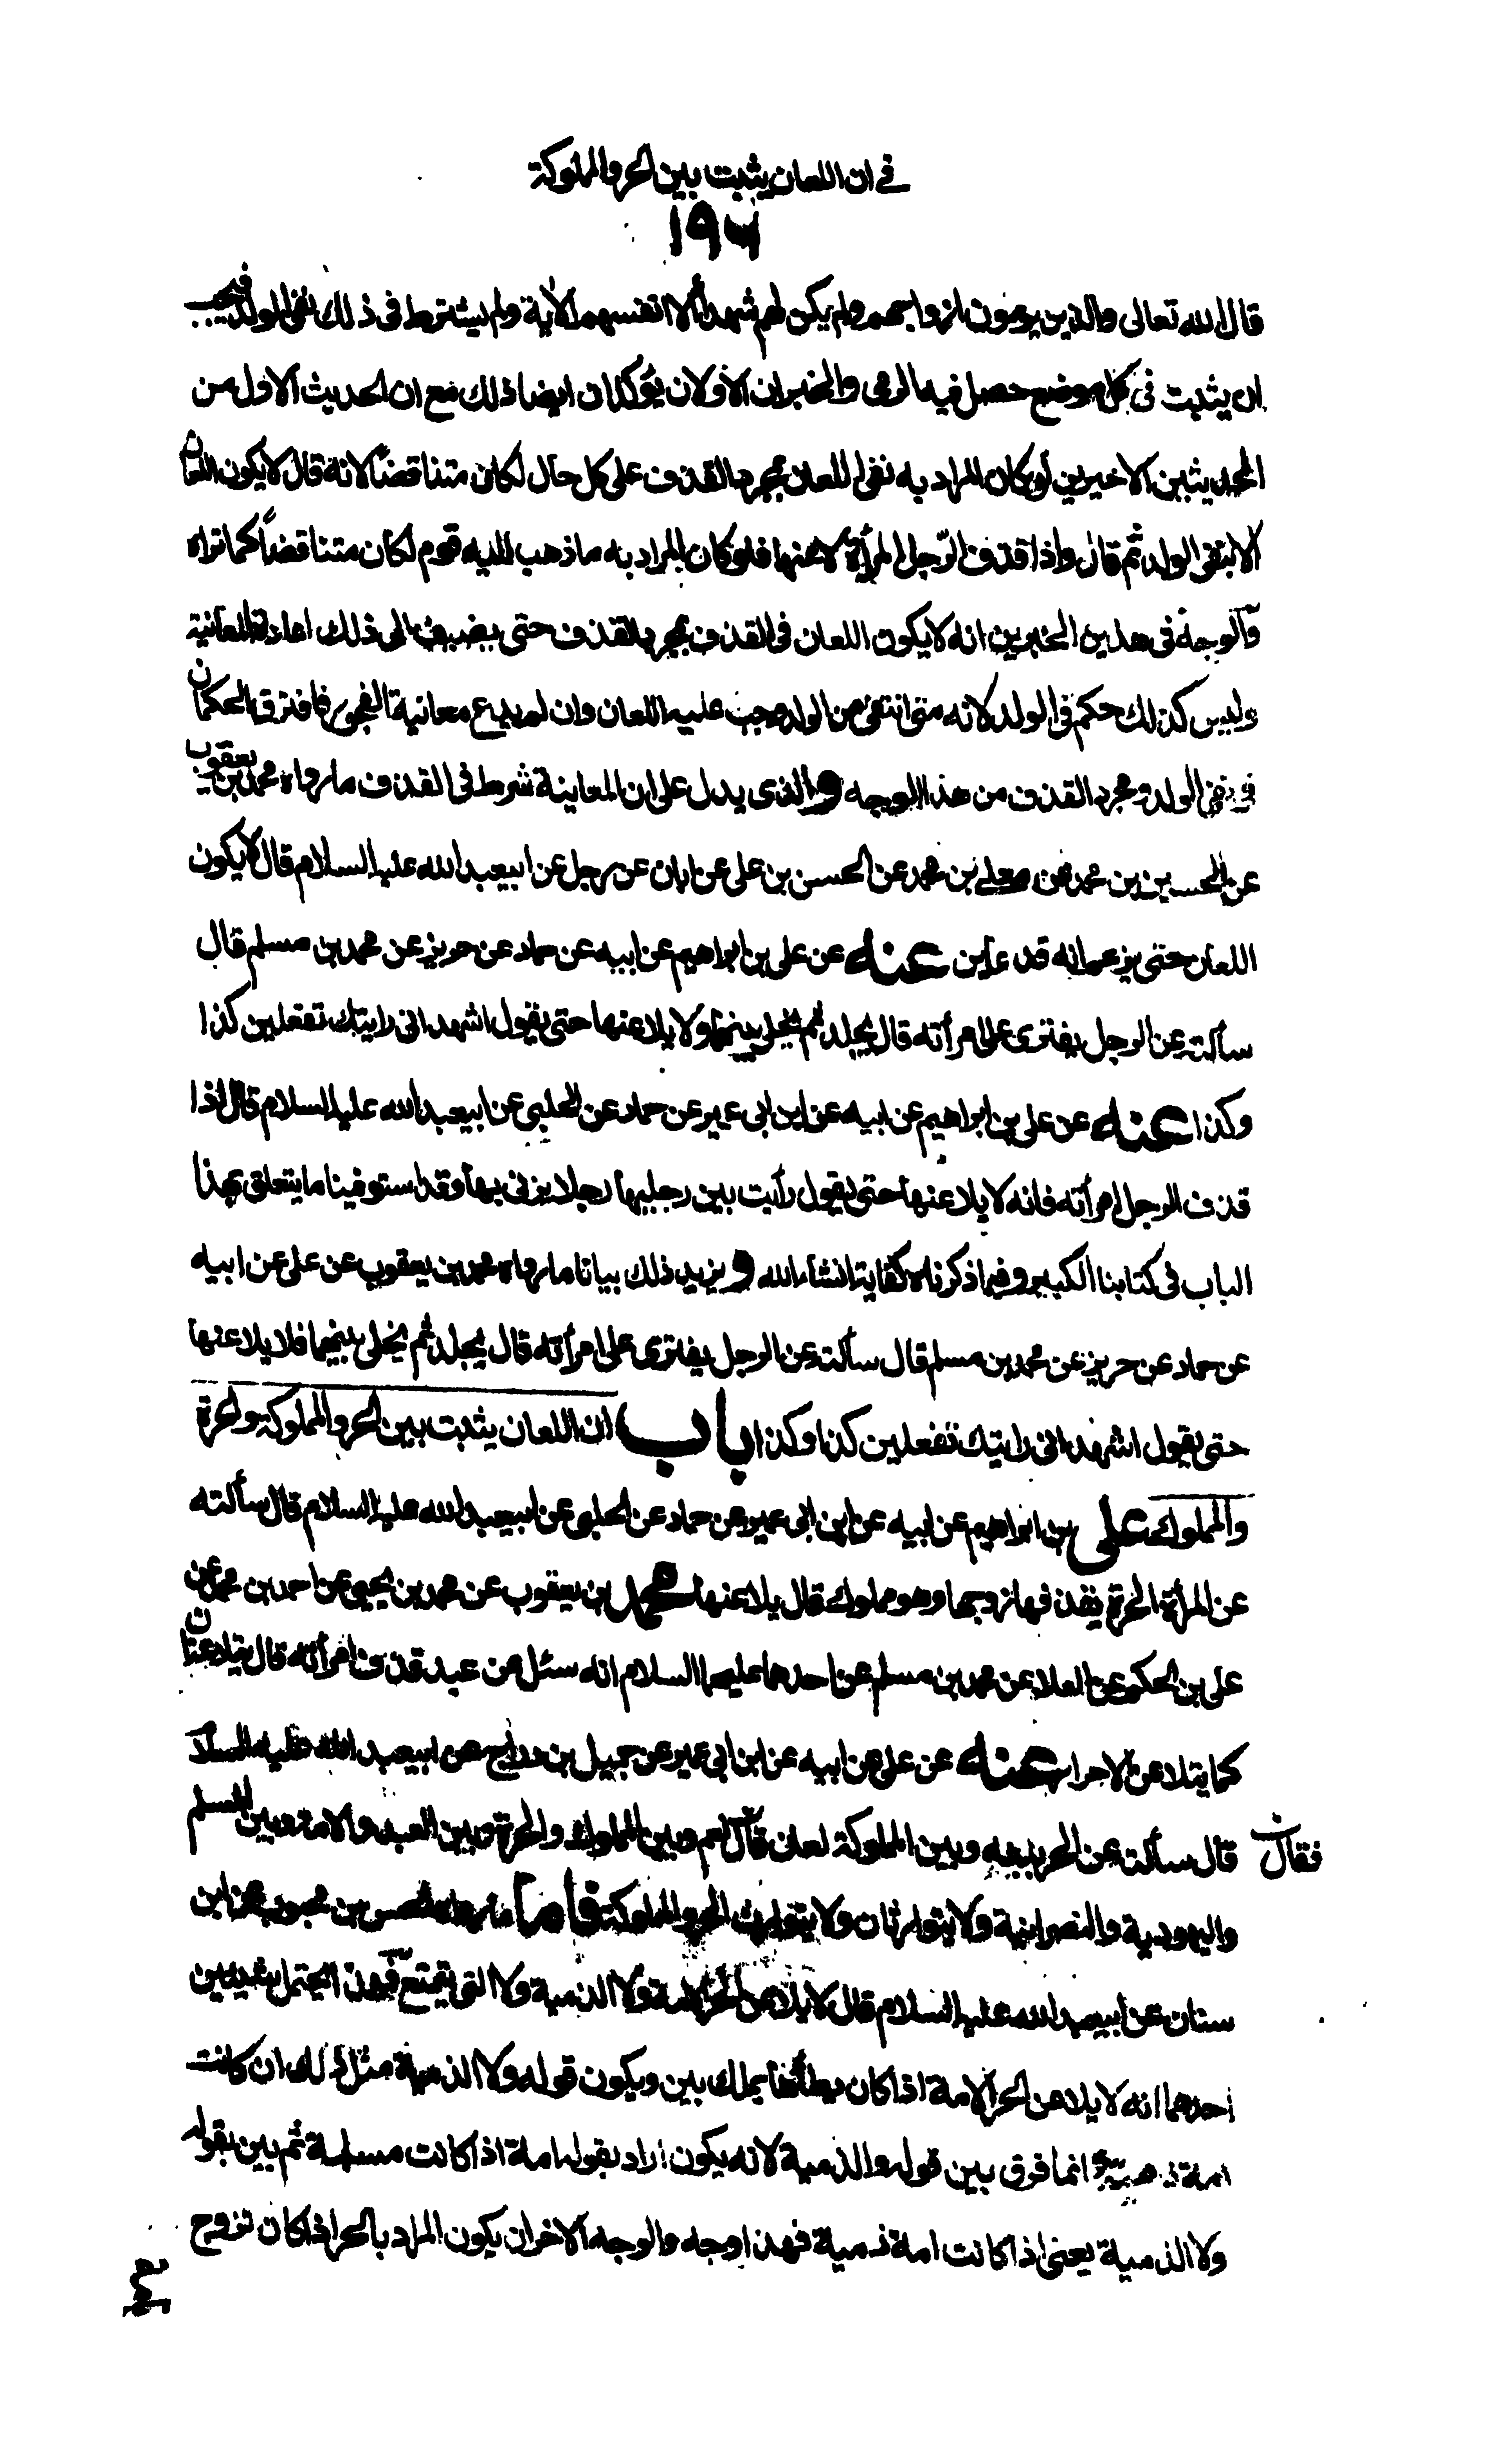 في ان اللعان يثبت بين الحر والمملوكة
١٩٦
قال الله تعالى والذين يرمون ازواجهم ولم يكن لهم شهدآء الا انفسهم الآية ولم يشترط فى ذلك نفى الولد فيجب
ان يثبت فى كل موضع حصل فيه الرمى والخبران الاولان يؤكدان ايضا ذلك مع ان الحديث الاول من
الحديثين الاخيرين لو كان المراد به نفى اللعان بمجرد القذف على كل حال لكان متناقضاً لانه قال لا يكون اللعان
الا بنفى الولد ثم قال واذا قذف الرّجل امرأته لاعنها فلو كان المراد به ما ذهب اليه قوم لكان متناقضاً كما تراه
وآلوجه فى هذين الخبرين انه لا يكون اللعان فى القذف بمجرد القذف حتى يضيف الى ذلك ادعاء المعاينة
وليس كذلك حكم فى الولد لانه متى انتفى من الولد وجب عليه اللعان وان لم يدع معاينة الفجور فافترق الحكمان
فى نفى الولد ومجرد القذف من هذا الوجه والذى يدل على ان المعاينة شرط فى القذف ما رواه محمد بن يعقوب
عن الحسين بن محمد عن معلى بن محمد عن الحسن بن على عن ابان عن رجل عن ابيعبد الله عليه السلام قال لا يكون
اللعان حتى يزعم انه قد عاين عنه عن على بن ابراهيم عن ابيه عن حماد عن حريز عن محمد بن مسلم قال
سألته عن الرجل يفترى على امرأته قال يجلد ثم يخلى بينهما ولا يلاعنها حتى يقول اشهد انى رايتك تفعلين كذا
وكذا عنه عن على بن ابراهيم عن ابيه عن ابن ابى عمير عن حماد عن الحلبى عن ابيعبد الله عليه السلام قال اذا
قذف الرجل امرأته فانه لا يلاعنها حتى يقول رأيت بين رجليها رجلا يزنى بها وقد استوفينا ما يتعلق بهذا
الباب فى كتابنا الكبير وفيما ذكرناه كفاية انشاء الله و يزيد ذلك بيانا ما رواه محمد بن يعقوب عن على عن ابيه
عن حماد عن حريز عن محمد بن مسلم قال سألته عن الرجل يفترى على امرأته قال يجلد ثم يخلى بينهما فلا يلاعنها
حتى يقول اشهد انى رايتك تفعلين كذا وكذا باب ان اللعان يثبت بين الحر والمملوكة والحرة
والمملوك على بن ابراهيم عن ابيه عن ابن ابى عمير عن حماد عن الحلبى عن ابيعبد الله عليه السلام قال سألته
عن المرأة الحرة يقذفها زوجها وهو مملوك قال يلاعنها محمد بن يعقوب عن محمد بن يحيى عن احمد بن محمد عن
على بن الحكم عن العلا عن محمد بن مسلم عن احدهما عليهما السلام انه سئل عن عبد قذف امرأته قال يتلاعنان
كما يتلاعن الاحرار عنه عن على عن ابيه عن ابن ابى عمير عن جميل بن دراج عن ابيعبد الله عليه السلا
قال سألته عن الحر بينه وبين المملوكة لعان قال نعم وبين المملوك والحرة وبين العبد والامة وبين المسلم
فقال
واليهودية والنصرانية ولا يتوارثان ولا يتوارث الحر والمملوكة فاما ما رواه الحسن بن محبوب عن ابن
سنان عن ابيعبد الله عليه السلام قال لا يلاعن الحر الامة ولا الذمية ولا التى يتمتع بها فهذا يحتمل شيئين
احدهما انه لا يلاعن الحر الامة اذا كان يطأها بملك يمين ويكون قوله ولا الذمية مثل ذلك ان كانت
امة ذمية انما فرق بين قوله والذمية لانه يكون اراد بقوله امة اذا كانت مسلمة ثم بين بقوله
ولا الذمية يعنى اذا كانت امة ذمية فهذا وجه والوجه الاخر ان يكون المراد بالحر اذا كان تزوج